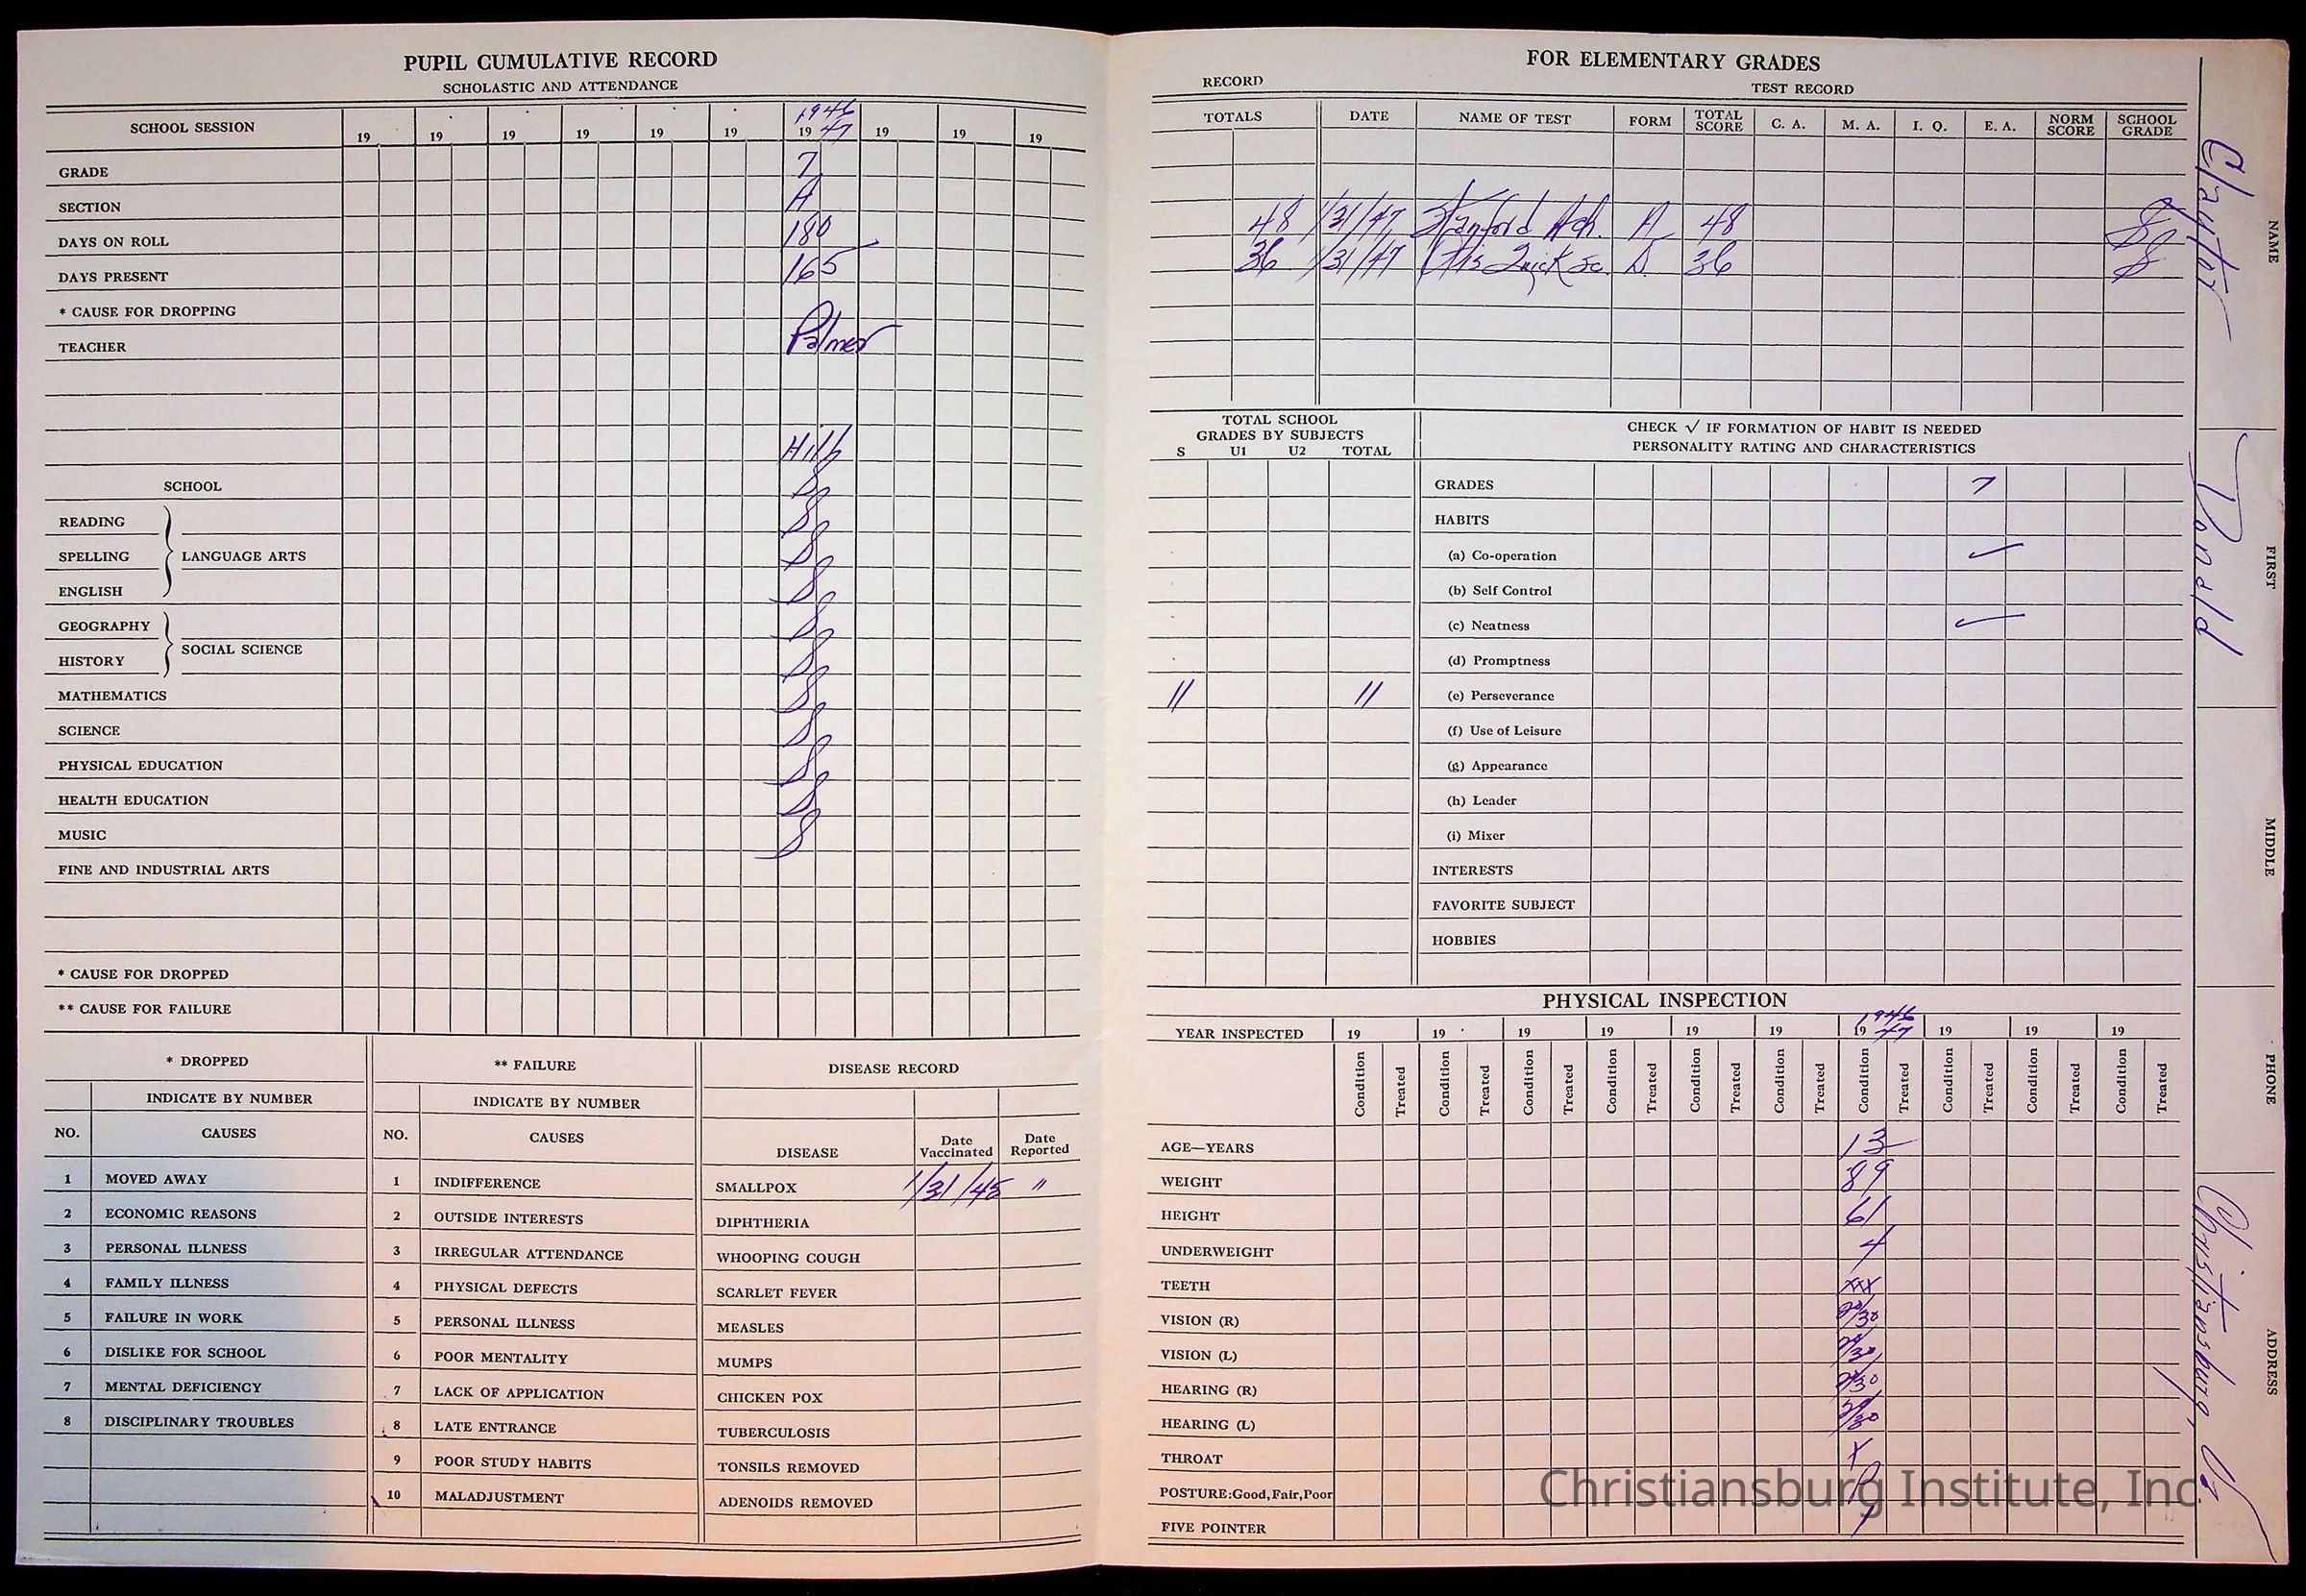 PUPIL CUMULATIVE RECORD
SCHOLASTIC AND ATTENDANCE
SCHOOL SESSION 19 19 19 19 19 19 1946 19 47 19 19 19
GRADE 7
SECTION A
DAYS ON ROLL 180
DAYS PRESENT 165
* CAUSE FOR DROPPING
TEACHER Palmer
Hill
SCHOOL S
READING S
SPELLING LANGUAGE ARTS S
ENGLISH S
GEOGRAPHY S
HISTORY SOCIAL SCIENCE S
MATHEMATICS S
SCIENCE S
PHYSICAL EDUCATION S
HEALTH EDUCATION S
MUSIC S
FINE AND INDUSTRIAL ARTS
* CAUSE FOR DROPPED
** CAUSE FOR FAILURE
* DROPPED
INDICATE BY NUMBER
NO. CAUSES
1 MOVED AWAY
2 ECONOMIC REASONS
3 PERSONAL ILLNESS
4 FAMILY ILLNESS
5 FAILURE IN WORK
6 DISLIKE FOR SCHOOL
7 MENTAL DEFICIENCY
8 DISCIPLINARY TROUBLES
** FAILURE
INDICATE BY NUMBER
NO. CAUSES
1 INDIFFERENCE
2 OUTSIDE INTERESTS
3 IRREGULAR ATTENDANCE
4 PHYSICAL DEFECTS
5 PERSONAL ILLNESS
6 POOR MENTALITY
7 LACK OF APPLICATION
8 LATE ENTRANCE
9 POOR STUDY HABITS
10 MALADJUSTMENT
DISEASE RECORD
DISEASE Date Vaccinated Date Reported
SMALLPOX 1/31/45 "
DIPHTHERIA
WHOOPING COUGH
SCARLET FEVER
MEASLES
MUMPS
CHICKEN POX
TUBERCULOSIS
TONSILS REMOVED
ADENOIDS REMOVED
FOR ELEMENTARY GRADES
RECORD TEST RECORD
TOTALS DATE NAME OF TEST FORM TOTAL SCORE C. A. M. A. I. Q. E. A. NORM SCORE SCHOOL GRADE
48 1/31/47 Stanford Ach. A 48 8
36 1/31/47 Otis Quick Sc. 36 8
TOTAL SCHOOL
GRADES BY SUBJECTS
S U1 U2 TOTAL
11 11
CHECK √ IF FORMATION OF HABIT IS NEEDED
PERSONALITY RATING AND CHARACTERISTICS
GRADES 7
HABITS
(a) Co-operation ✓
(b) Self Control
(c) Neatness ✓
(d) Promptness
(e) Perseverance
(f) Use of Leisure
(g) Appearance
(h) Leader
(i) Mixer
INTERESTS
FAVORITE SUBJECT
HOBBIES
PHYSICAL INSPECTION
YEAR INSPECTED 19 19 19 19 19 19 1946 19 47 19 19 19
Condition Treated Condition Treated Condition Treated Condition Treated Condition Treated Condition Treated Condition Treated Condition Treated Condition Treated Condition Treated
AGE—YEARS 13
WEIGHT 89
HEIGHT 61
UNDERWEIGHT 4
TEETH xxx
VISION (R) 20/30
VISION (L) 20/30
HEARING (R) 20/30
HEARING (L) 20/30
THROAT x
POSTURE: Good, Fair, Poor
FIVE POINTER
NAME Claytor
FIRST Donald
MIDDLE
PHONE
ADDRESS Christiansburg, Va
Christiansburg Institute, Inc.